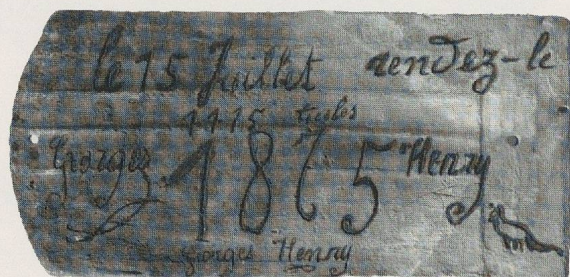 le 15 Juillet rendez-le
Georges 1865 Henry
Georges Henry